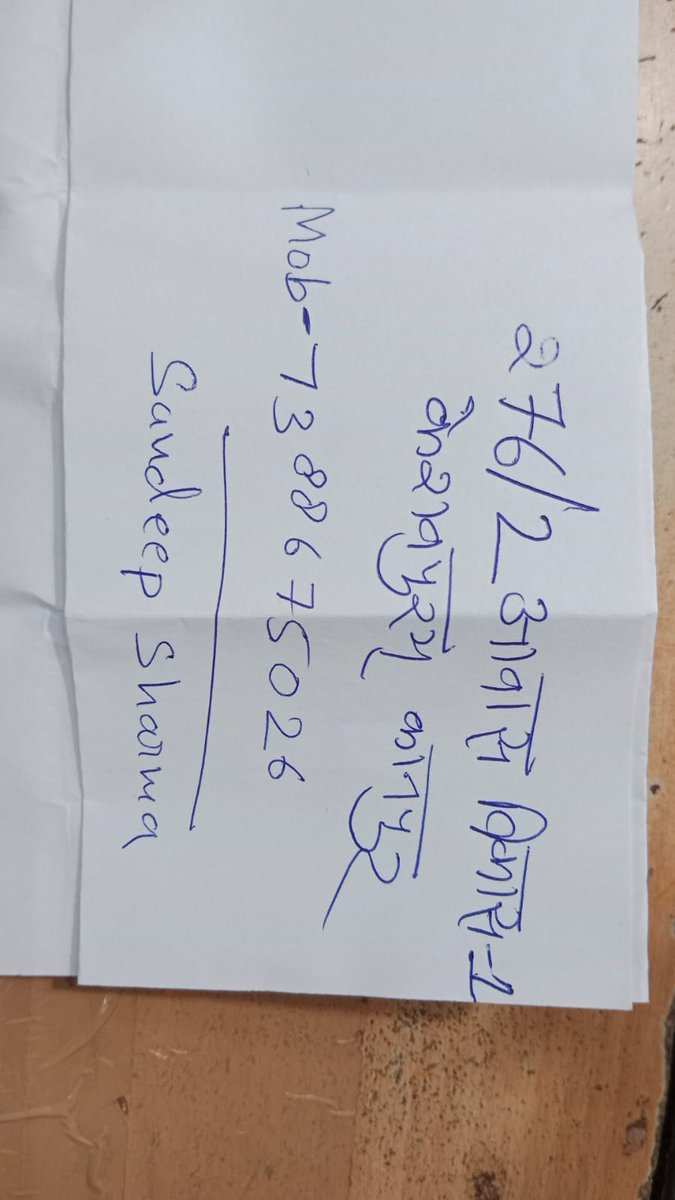 276/2 आवास विकास-1
केशवपुरम् कानपुर
Mob-7388675026
Sandeep Sharma